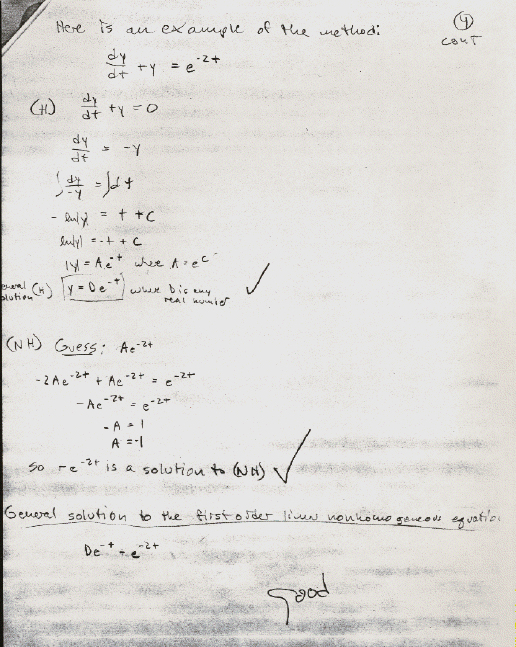 Here is an example of the method:
④
CONT
dy/dt + y = e^-2t
(H) dy/dt + y = 0
dy/dt = -y
∫ dy/-y = ∫dt
- ln|y| = t + C
ln|y| = -t + C
|y| = Ae^-t where A = e^C
eneral
olution (H) y = De^-t where D is any
real number
(NH) Guess: Ae^-2t
-2Ae^-2t + Ae^-2t = e^-2t
-Ae^-2t = e^-2t
-A = 1
A = -1
So -e^-2t is a solution to (NH)
General solution to the first order linear nonhomogeneous equatio
De^-t - e^-2t
Good